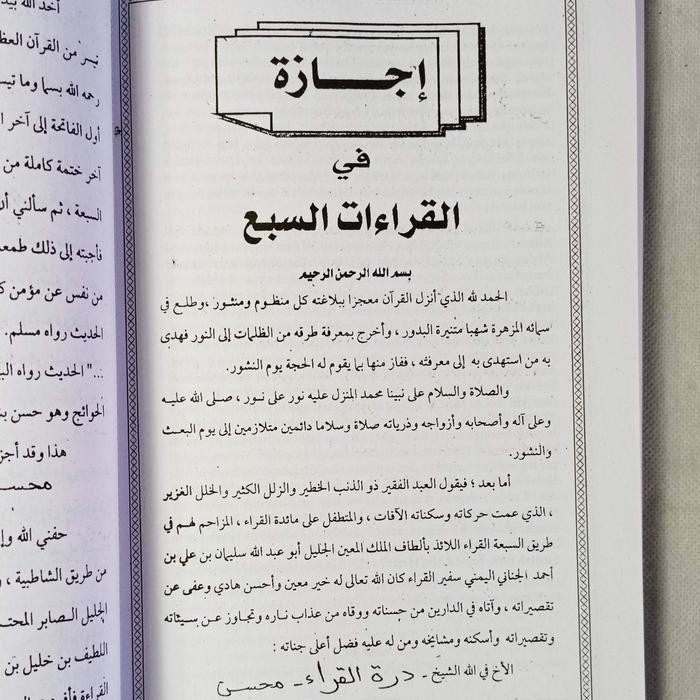 إجازة
في
القراءات السبع
بسم الله الرحمن الرحيم
الحمد لله الذي أنزل القرآن معجزا ببلاغته كل منظوم ومنثور ، وطلع في
سمائه المزهرة شهبا مستنيرة البدور ، وأخرج بمعرفة طرقه من الظلمات إلى النور فهدى
به من استهدى به إلى معرفته ، ففاز منها بما يقوم له الحجة يوم النشور.
والصلاة والسلام على نبينا محمد المنزل عليه نور على نور ، صلى الله عليه
وعلى آله وأصحابه وأزواجه وذرياته صلاة وسلاما دائمين متلازمين إلى يوم البعث
والنشور.
أما بعد ؛ فيقول العبد الفقير ذو الذنب الخطير والزلل الكثير والخلل الغزير
، الذي عمت حركاته وسكناته الآفات ، والمتطفل على مائدة القراء ، المزاحم لهم في
طريق السبعة القراء اللائذ بألطاف الملك المعين الجليل أبو عبد الله سليمان بن علي بن
أحمد الجناني اليمني سفير القراء كان الله تعالى له خير معين وأحسن هادي وعفى عن
تقصيراته ، وآتاه في الدارين من حسناته ووقاه من عذاب ناره وتجاوز عن سيئاته
وتقصيراته وأسكنه ومشايخه ومن له عليه فضل أعلى جناته :
الأخ في الله الشيخ - درة القراء - محسن
أخذ الله
من القرآن
رحمه الله بسما وما
أول الفاتحة إلى آخر
آخر ختمة كاملة من
السبعة ، ثم سألني أن
فأجبته إلى ذلك
من نفس عن مؤمن
الحديث رواه مسلم.
..." الحديث رواه
الحوائج وهو حسن
هذا وقد
حفني الله
من طريق الشاطبية ،
الجليل الصابر
اللطيف بن خليل بن